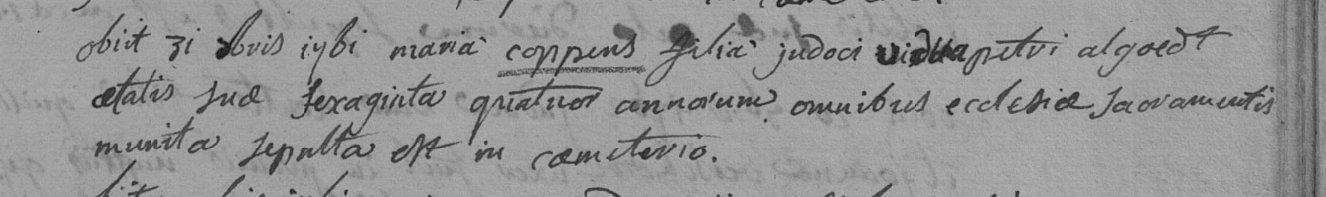 obiit 31 xbris 1761 maria coppens filia judoci vidua petri algoedt
ætatis suæ sexaginta quatuor annorum omnibus ecclesiæ sacramentis
munita sepulta est in cæmeterio.